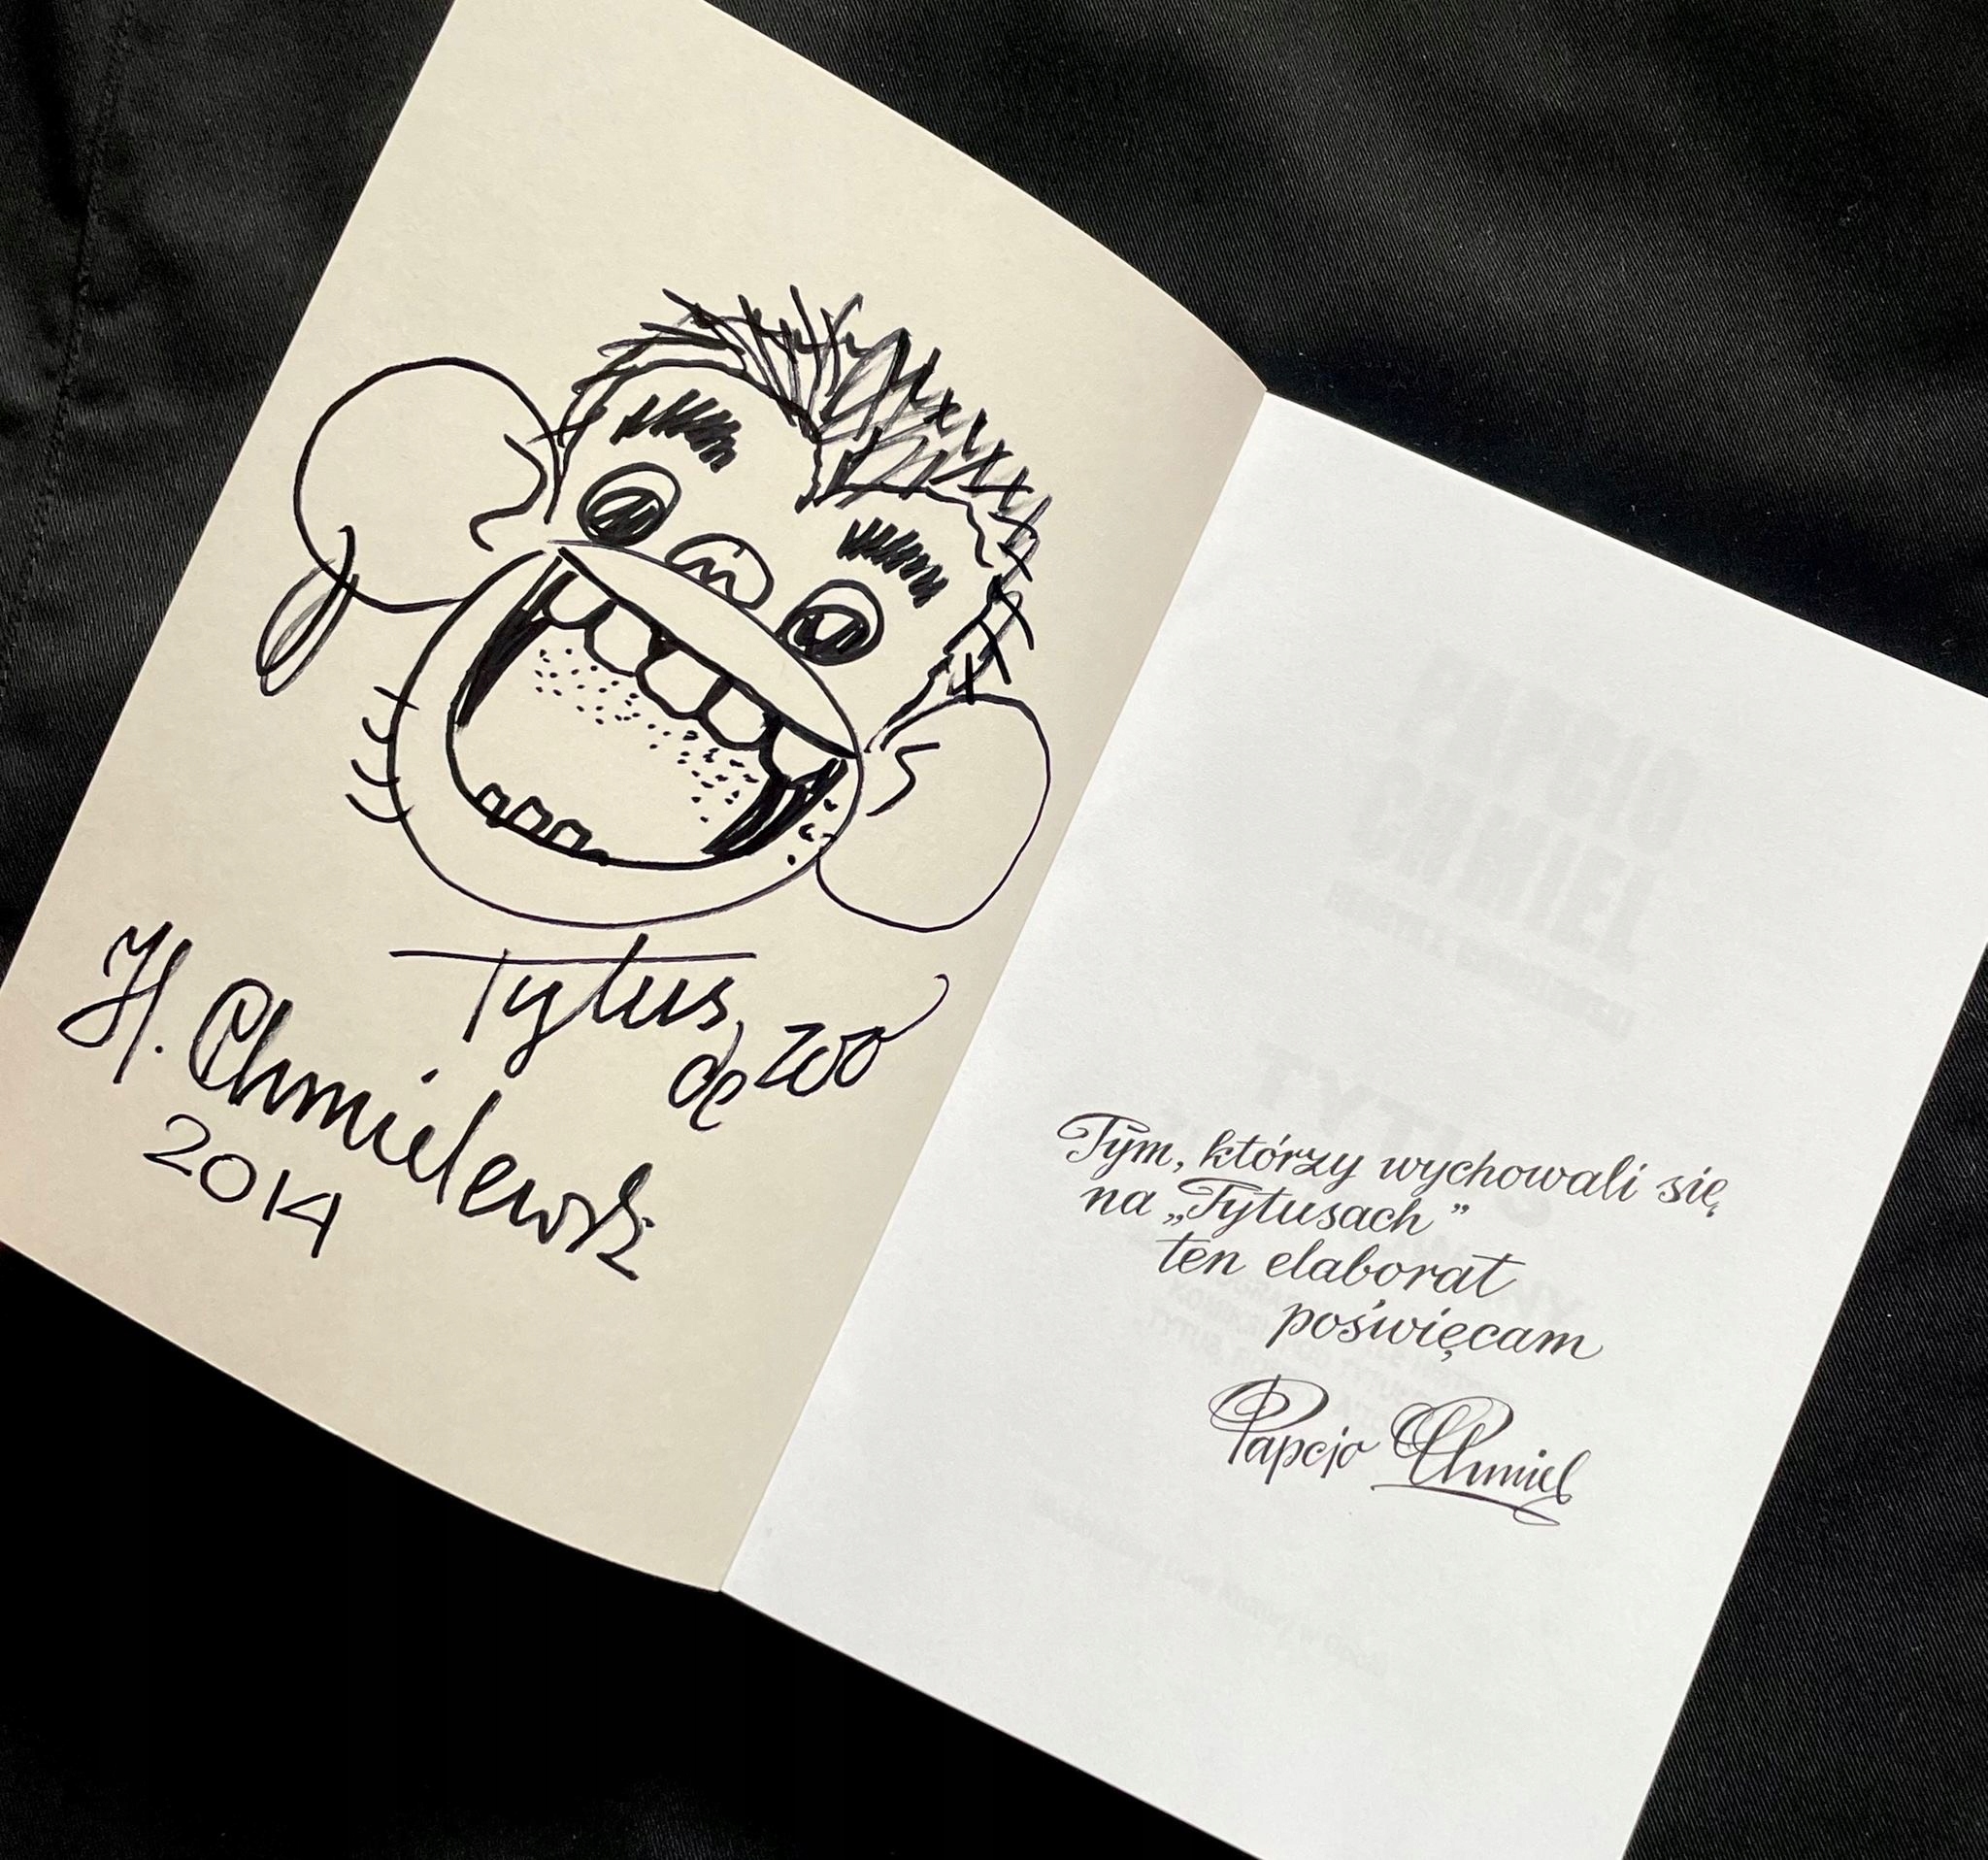 Tytus
de Zoo
H. Chmielewski
2014
Tym, którzy wychowali się
na „Tytusach”
ten elaborat
poświęcam
Papcio Chmiel